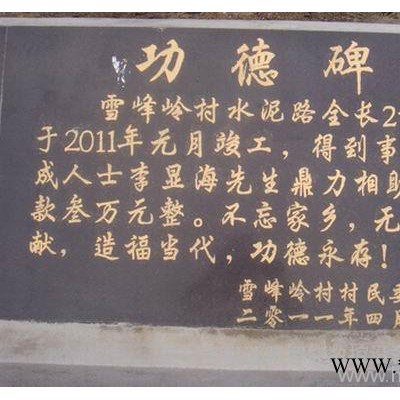 功德碑
雪峰岭村水泥路全长2
于2011年元月竣工，得到事
成人士李显海先生鼎力相助
款叁万元整。不忘家乡，无
献，造福当代，功德永存！
雪峰岭村村民委
二零一一年四月
www.